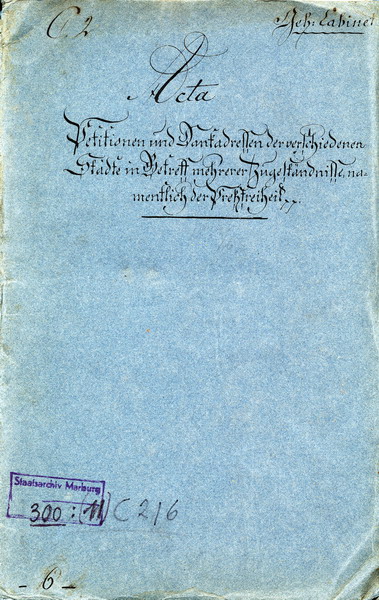 C 2
Geh: Cabinet
Acta
Petitionen und Dankadressen der verschiedenen
Städte in Betreff mehrerer Zugeständnisse, na-
mentlich der Preßfreiheit
Staatsarchiv Marburg
300 : 11 C 2/6
- 6 -